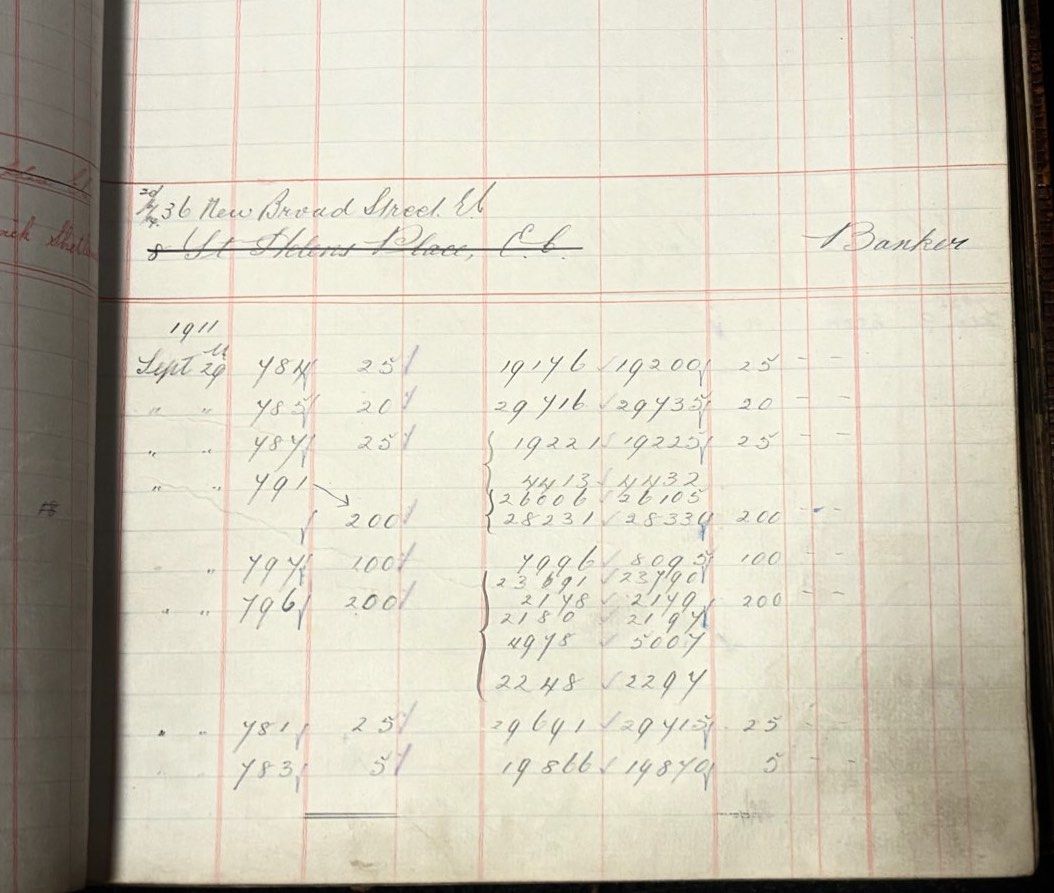 36 New Broad Street. EC
8 St Helens Place, E.C.
Banker
1911
Sept 29 784 25 19176 19200 25 - -
" " 785 20 29716 29735 20 - -
" " 787 25 19221 19225 25 - -
" " 791 4413 4432
26006 26105
200 28231 28330 200 - -
" " 797 100 7996 8095 100 - -
23691 23790
" " 796 200 2178 2179 200 - -
2180 2197
4978 5007
2248 2297
" " 781 25 29691 29715 25 - -
" " 783 5 19866 19870 5 - -